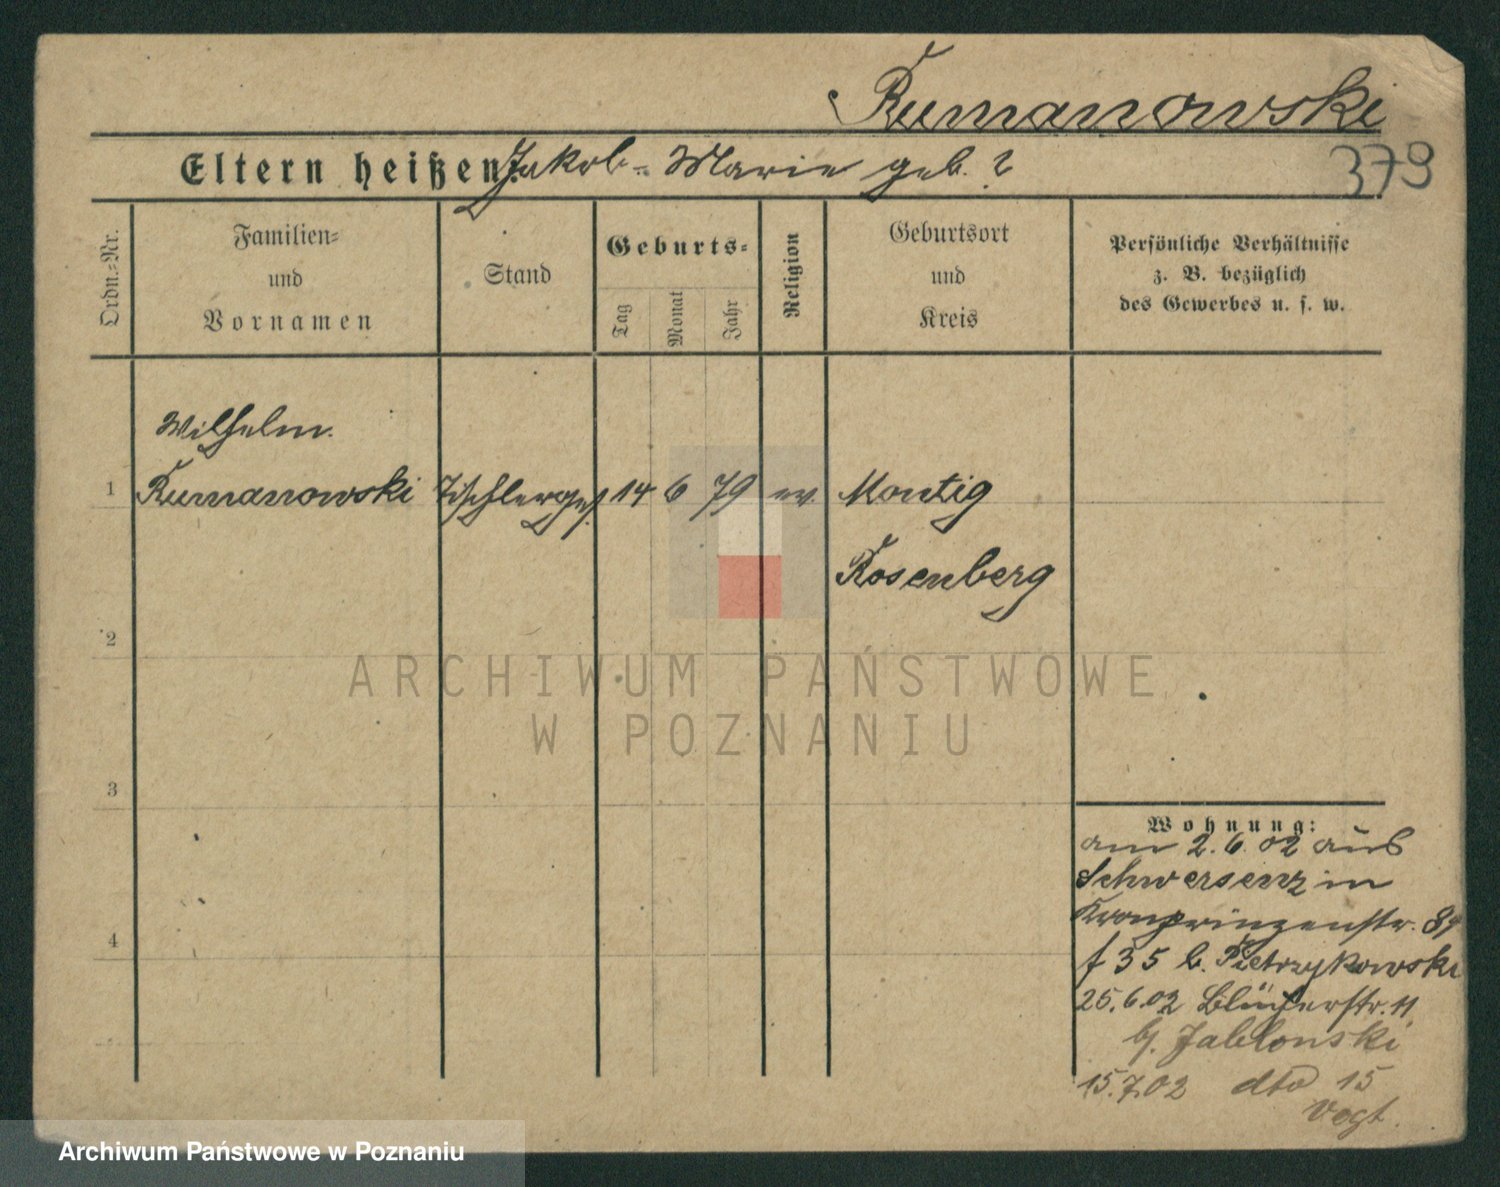 Rumanowski
Eltern heißen: Jakob - Marie geb. ?
379
Ordn.-Nr.
Familien-
und
Vornamen
Stand
Geburts-
Tag
Monat
Jahr
Religion
Geburtsort
und
Kreis
Persönliche Verhältnisse
z. B. bezüglich
des Gewerbes u. s. w.
Wilhelm
1 Rumanowski Tischlerges. 14 6 79 ev. Montig
Rosenberg
2
3
4
ARCHIWUM PAŃSTWOWE
W POZNANIU
Wohnung:
am 2.6.02 aus
Schwersenz in
Kronprinzenstr. 89
f 35 b. Pietrzykowski
25.6.02 Blücherstr. 11
b/. Jablonski
15.7.02 dto 15
Vogt.
Archiwum Państwowe w Poznaniu